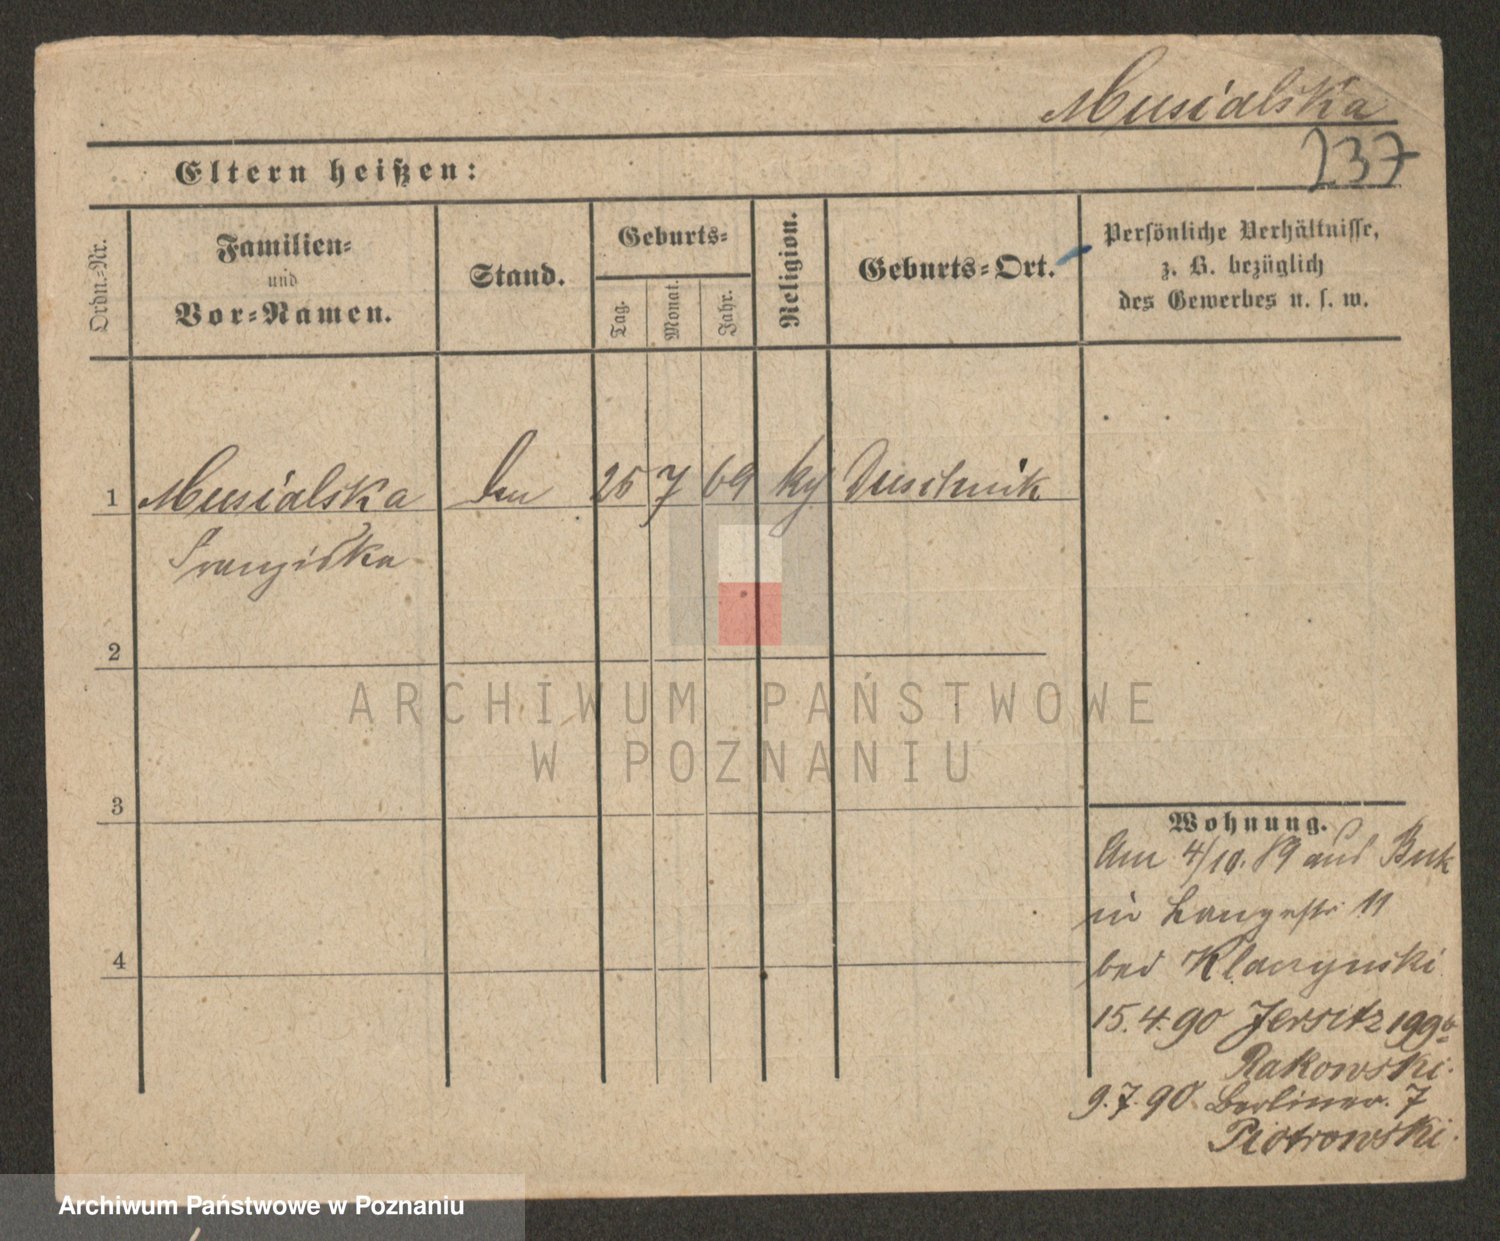 Musialska
237
Eltern heißen:
Ordn.-Nr.
Familien-
und
Vor-Namen.
Stand.
Geburts-
Tag.
Monat.
Jahr.
Religion.
Geburts-Ort.
Persönliche Verhältnisse,
z. B. bezüglich
des Gewerbes u. s. w.
1 Musialska 7 69 Duschnik
Franziska
2
3
4
Wohnung.
Am 4/10. 89 aus Buk
in Langestr 11
bei
15.4.90 Jersitz
Rakowski.
9.7.90 Berliner. 7
Piotrowski.
ARCHIWUM PAŃSTWOWE
W POZNANIU
Archiwum Państwowe w Poznaniu